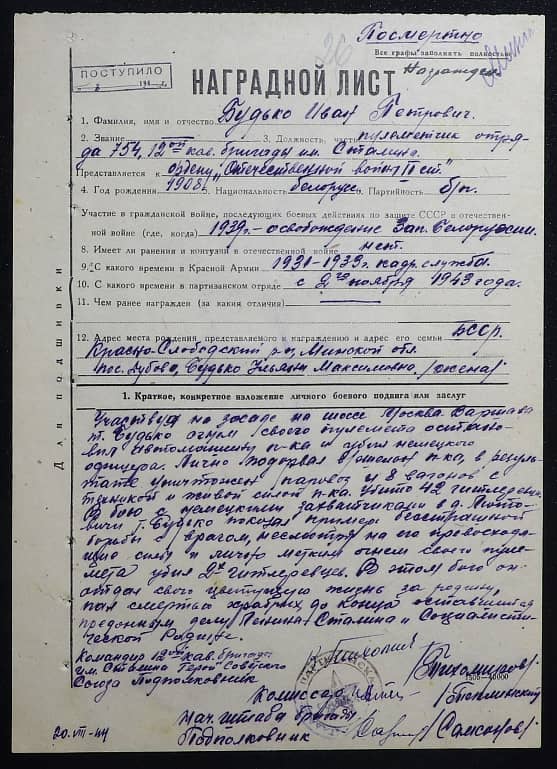 Посмертно
Все графы заполнять полностью
26
ПОСТУПИЛО
Награжден
НАГРАДНОЙ ЛИСТ
1. Фамилия, имя и отчество Будько Иван Петрович.
2. Звание 3. Должность, часть пулеметчик отря-
да 754, 12ой кав. бригады им. Сталина.
Представляется к ордену "Отечественной войны II ст."
4. Год рождения 1908г. 5. Национальность белорус 6. Партийность б/п.
Участие в гражданской войне, последующих боевых действиях по защите СССР и отечествен-
ной войне (где, когда) 1939г. - освобождение Зап. Белоруссии.
8. Имеет ли ранения и контузии в отечественной войне нет.
9. С какого времени в Красной Армии 1931-1933г. кадр. служба.
10. С какого времени в партизанском отряде с 2го ноября 1943 года.
11. Чем ранее награжден (за какие отличия)
12. Адрес места рождения представляемого к награждению и адрес его семьи БССР.
Красно-Слободский р-н, Минской обл.
пос. Дубово, Будько Ульяна Максимовна /жена/
Для подшивки
1. Краткое, конкретное изложение личного боевого подвига или заслуг
Участвуя на засаде на шоссе Москва Варшава
т. Будько огнем своего пулемета остано-
вил автомашину п-ка и убил немецкого
офицера. Лично подорвал эшелон п-ка, в резуль-
тате уничтожен паровоз и 8 вагонов с
техникой и живой силой п-ка. Убито 42 гитлеровца.
В бою с немецкими захватчиками в д.
т. Будько показал пример бесстрашной
борьбы с врагом, несмотря на его превосходя-
щую силу и лично метким огнем своего пуле-
мета убил 2х гитлеровцев. В этом бою он
отдал свою цветущую жизнь за родину,
пал смертью храбрых, до конца оставшийся
преданным делу Ленина-Сталина и Социалисти-
ческой Родине.
Командир 12ой кав. бригады
им. Сталина Герой Советского
Союза Подполковник /Тихомиров/
1500-40000
Комиссар
Нач. штаба бригады
Подполковник /Самсонов/
20.VIII-44